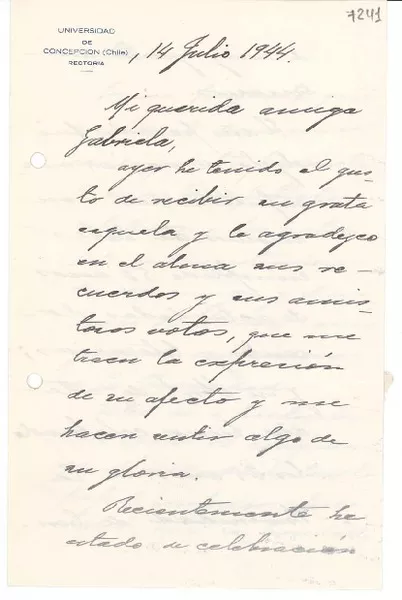 7241
UNIVERSIDAD
DE
CONCEPCION (Chile)
RECTORIA
, 14 Julio 1944.
Mi querida amiga
Gabriela,
ayer he tenido el gus-
to de recibir su grata
esquela y le agradezco
en el alma sus re-
cuerdos y sus amis-
tosos votos, que me
traen la expresión
de su afecto y me
hacen sentir algo de
su gloria.
Recientemente ha
estado de celebración